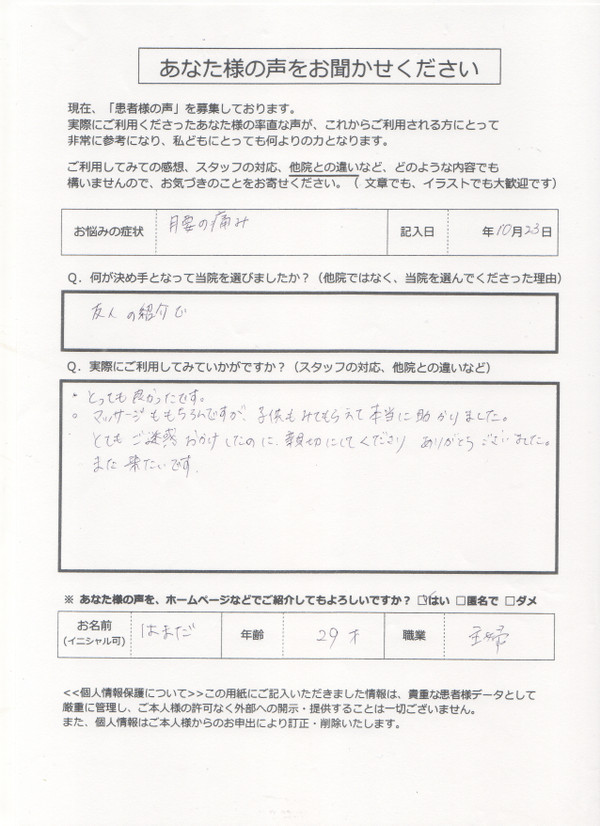 あなた様の声をお聞かせください
現在、「患者様の声」を募集しております。
実際にご利用くださったあなた様の率直な声が、これからご利用される方にとって
非常に参考になり、私どもにとっても何よりの力となります。
ご利用してみての感想、スタッフの対応、他院との違いなど、どのような内容でも
構いませんので、お気づきのことをお寄せください。（ 文章でも、イラストでも大歓迎です）
お悩みの症状 腰の痛み 記入日 年10月23日
Q. 何が決め手となって当院を選びましたか？（他院ではなく、当院を選んでくださった理由）
友人の紹介で
Q. 実際にご利用してみていかがですか？（スタッフの対応、他院との違いなど）
・とっても良かったです。
。マッサージももちろんですが、子供もみてもらえて本当に助かりました。
とてもご迷惑おかけしたのに、親切にしてくださりありがとうございました。
また来たいです。
※ あなた様の声を、ホームページなどでご紹介してもよろしいですか？ ☑はい □匿名で □ダメ
お名前 はまだ 年齢 29才 職業 主婦
(イニシャル可)
<<個人情報保護について>>この用紙にご記入いただきました情報は、貴重な患者様データとして
厳重に管理し、ご本人様の許可なく外部への開示・提供することは一切ございません。
また、個人情報はご本人様からのお申出により訂正・削除いたします。